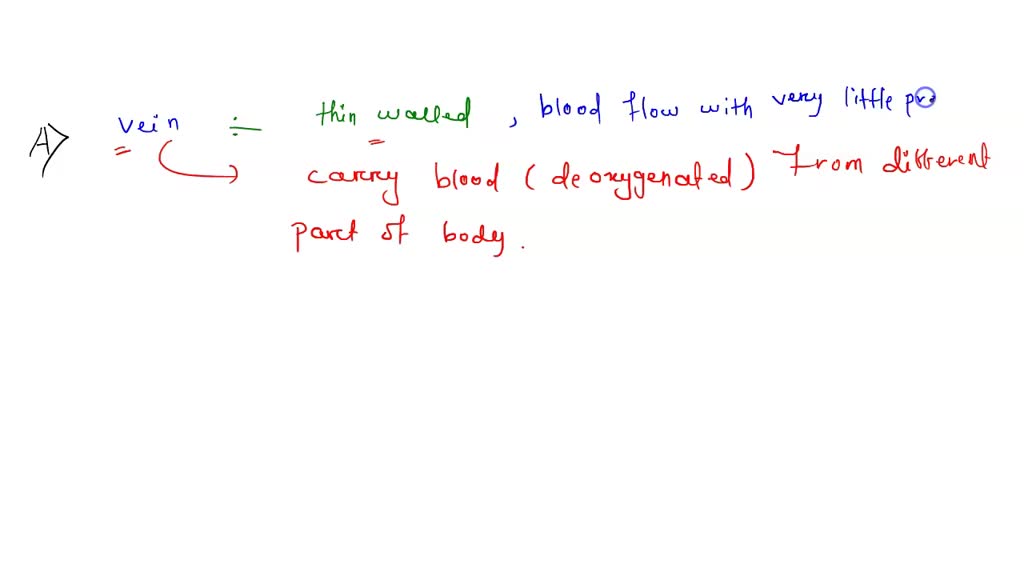 A) vein ÷ thin walled, blood flow with very little pre
carry blood (deoxygenated) From different
part of body.